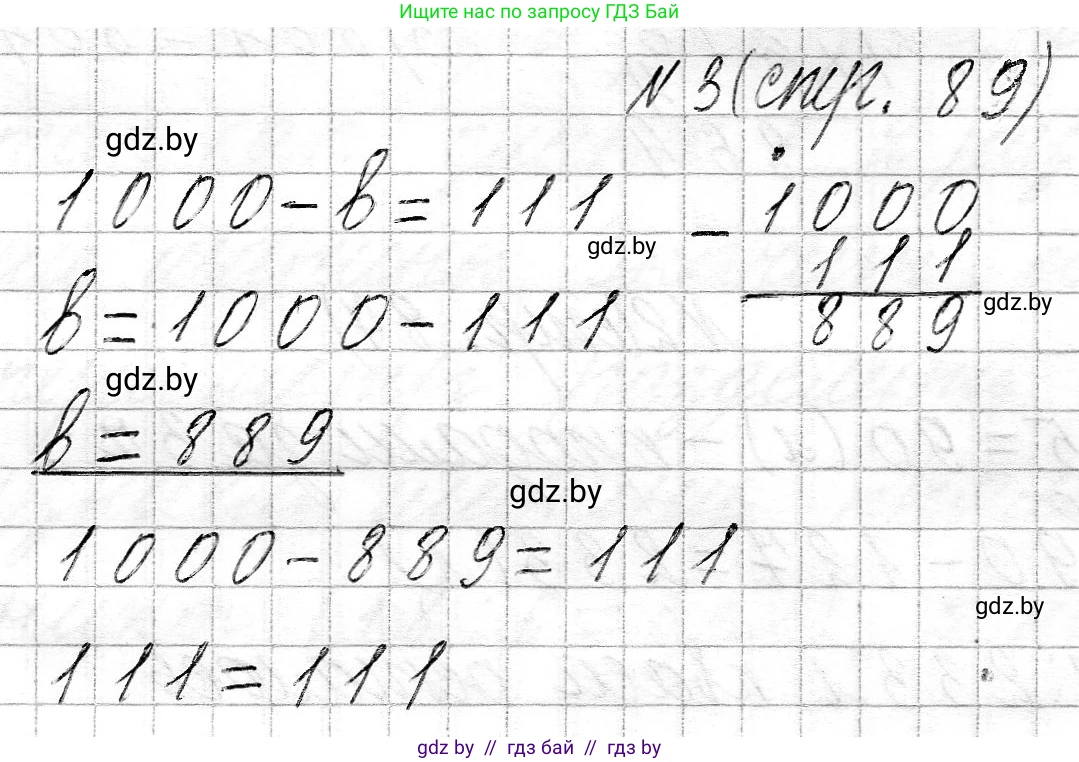 Ищите нас по запросу ГДЗ Бай
N 3 (стр. 89)
gdz.by
1000 - b = 111
gdz.by
- 1000
111
889
gdz.by
b = 1000 - 111
gdz.by
b = 889
gdz.by
1000 - 889 = 111
gdz.by
111 = 111
gdz by // гдз бай // гдз by